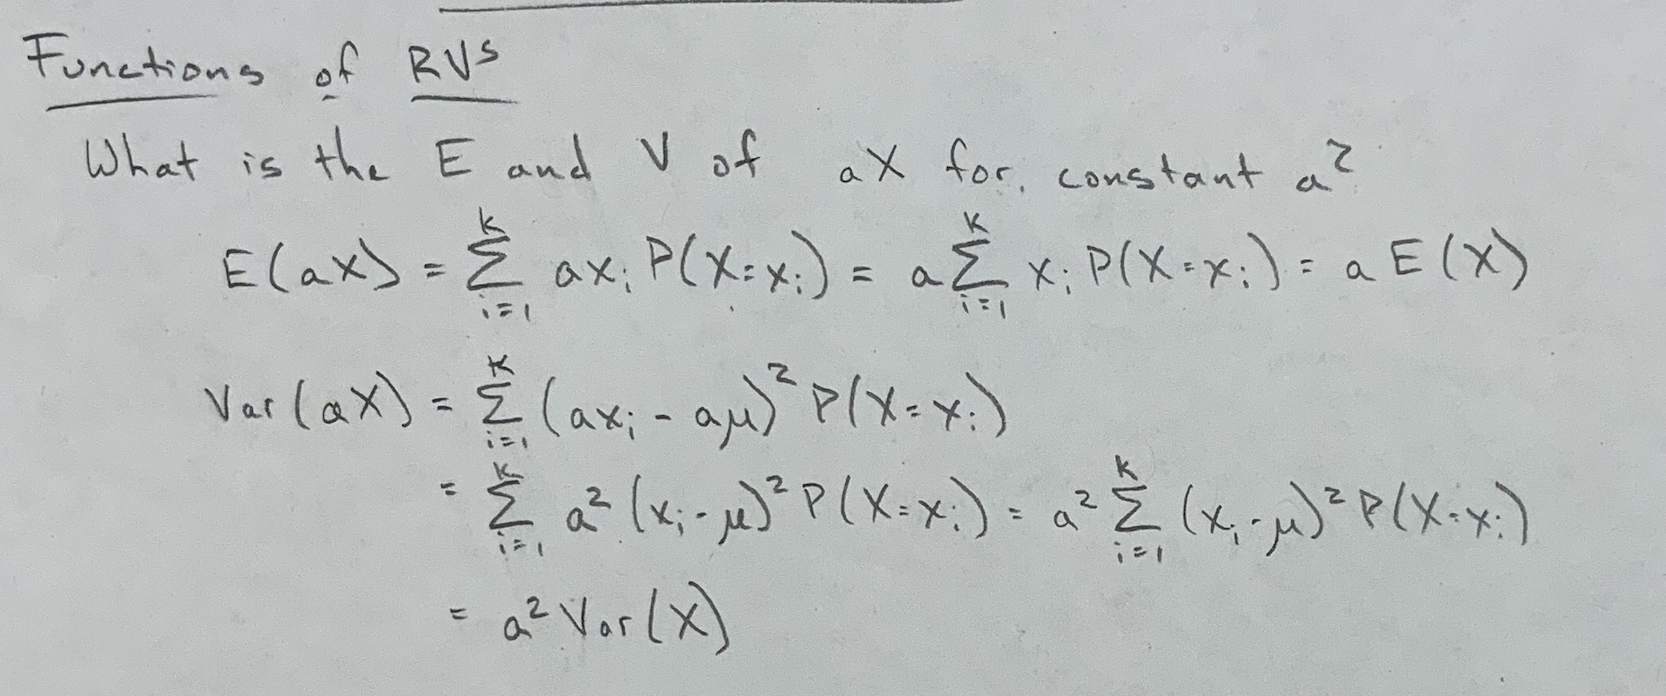 Functions of RVs
What is the E and V of aX for constant a?
E(aX) = \sum_{i=1}^{k} ax_i P(X=x_i) = a \sum_{i=1}^{k} x_i P(X=x_i) = a E(X)
Var(aX) = \sum_{i=1}^{k} (ax_i - aμ)^2 P(X=x_i)
= \sum_{i=1}^{k} a^2 (x_i - μ)^2 P(X=x_i) = a^2 \sum_{i=1}^{k} (x_i - μ)^2 P(X=x_i)
= a^2 Var(X)